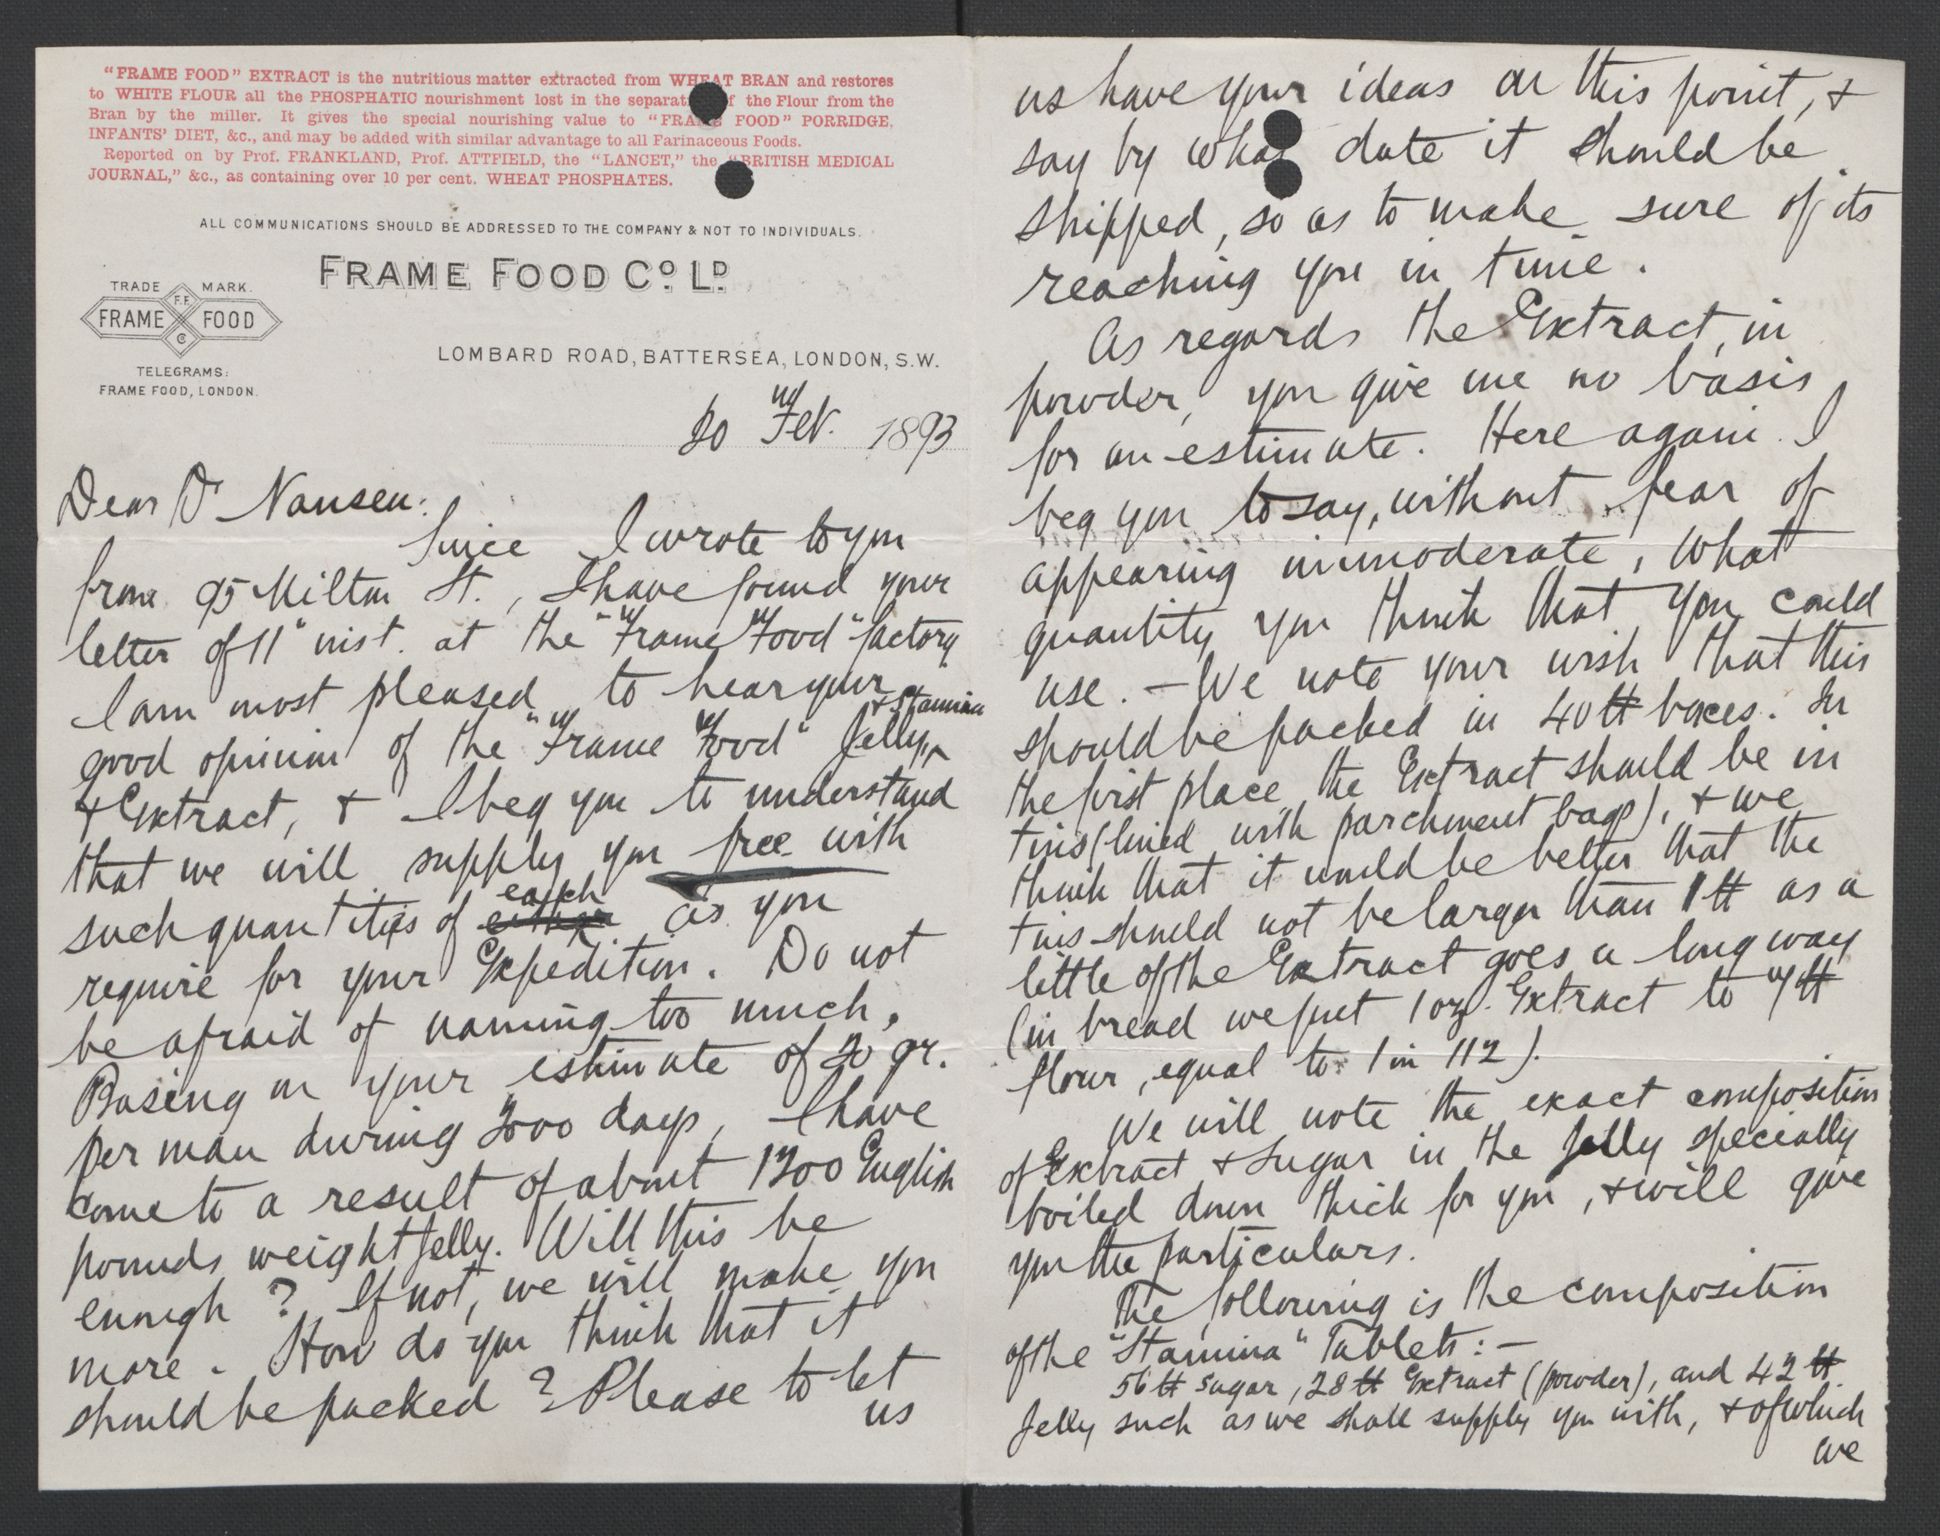 "FRAME FOOD" EXTRACT is the nutritious matter extracted from WHEAT BRAN and restores
to WHITE FLOUR all the PHOSPHATIC nourishment lost in the separat of the Flour from the
Bran by the miller. It gives the special nourishing value to "FRAME FOOD" PORRIDGE,
INFANTS' DIET, &c., and may be added with similar advantage to all Farinaceous Foods.
Reported on by Prof. FRANKLAND, Prof. ATTFIELD, the "LANCET," the "BRITISH MEDICAL
JOURNAL," &c., as containing over 10 per cent. WHEAT PHOSPHATES.
ALL COMMUNICATIONS SHOULD BE ADDRESSED TO THE COMPANY & NOT TO INDIVIDUALS.
FRAME FOOD Co. LD.
TRADE MARK.
F.F.
FRAME FOOD
Co
TELEGRAMS:
FRAME FOOD, LONDON.
LOMBARD ROAD, BATTERSEA, LONDON, S.W.
20 Feb. 1893
Dear Dr Nansen:
Since I wrote to you
from 95 Milton St., I have found your
letter of 11" inst. at the "Frame Food" factory
I am most pleased to hear your
good opinion of the "Frame Food" Jelly, + Stamina
+ Extract, + I beg you to understand
that we will supply you free with
such quantities of each as you
require for your Expedition. Do not
be afraid of naming too much.
Basing on your estimate of 20 gr.
per man during 2000 days, I have
come to a result of about 1200 English
pounds weight Jelly. Will this be
enough? If not, we will make you
more. How do you think that it
should be packed? Please to let
us
us have your ideas on this point, +
say by what date it should be
shipped, so as to make sure of its
reaching you in time.
As regards the Extract, in
powder, you give me no basis
for an estimate. Here again I
beg you to say, without fear of
appearing immoderate, what
quantity you think that you could
use. — We note your wish that this
should be packed in 40 lb boxes. In
the first place the Extract should be in
tins (lined with parchment bags), + we
think that it would be better that the
tins should not be larger than 1 lb as a
little of the Extract goes a long way
(in bread we put 1 oz. Extract to 7 lb
flour, equal to 1 in 112).
We will note the exact composition
of Extract + Sugar in the Jelly specially
boiled down thick for you, + will give
you the particulars.
The following is the composition
of the "Stamina" Tablets: —
56 lb sugar, 28 lb Extract (powder), and 42 lb
Jelly such as we shall supply you with, + of which
we